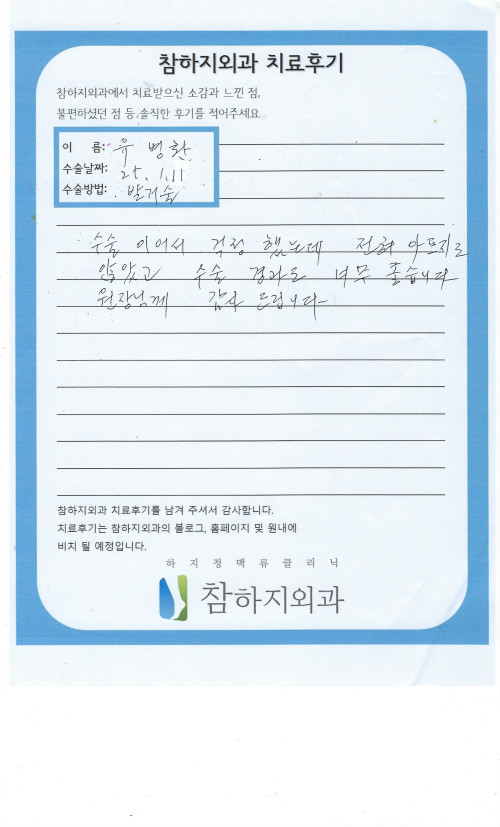 참하지외과 치료후기
참하지외과에서 치료받으신 소감과 느낀 점,
불편하셨던 점 등 솔직한 후기를 적어주세요
이 름: 유 병환
수술날짜: 25. 1. 11
수술방법: 발거술
수술 이어서 걱정 했는데 전혀 아프지도
않았고 수술 경과도 너무 좋습니다
원장님께 감사 드립니다
참하지외과 치료후기를 남겨 주셔서 감사합니다.
치료후기는 참하지외과의 블로그, 홈페이지 및 원내에
비치 될 예정입니다.
하지정맥류클리닉
참하지외과